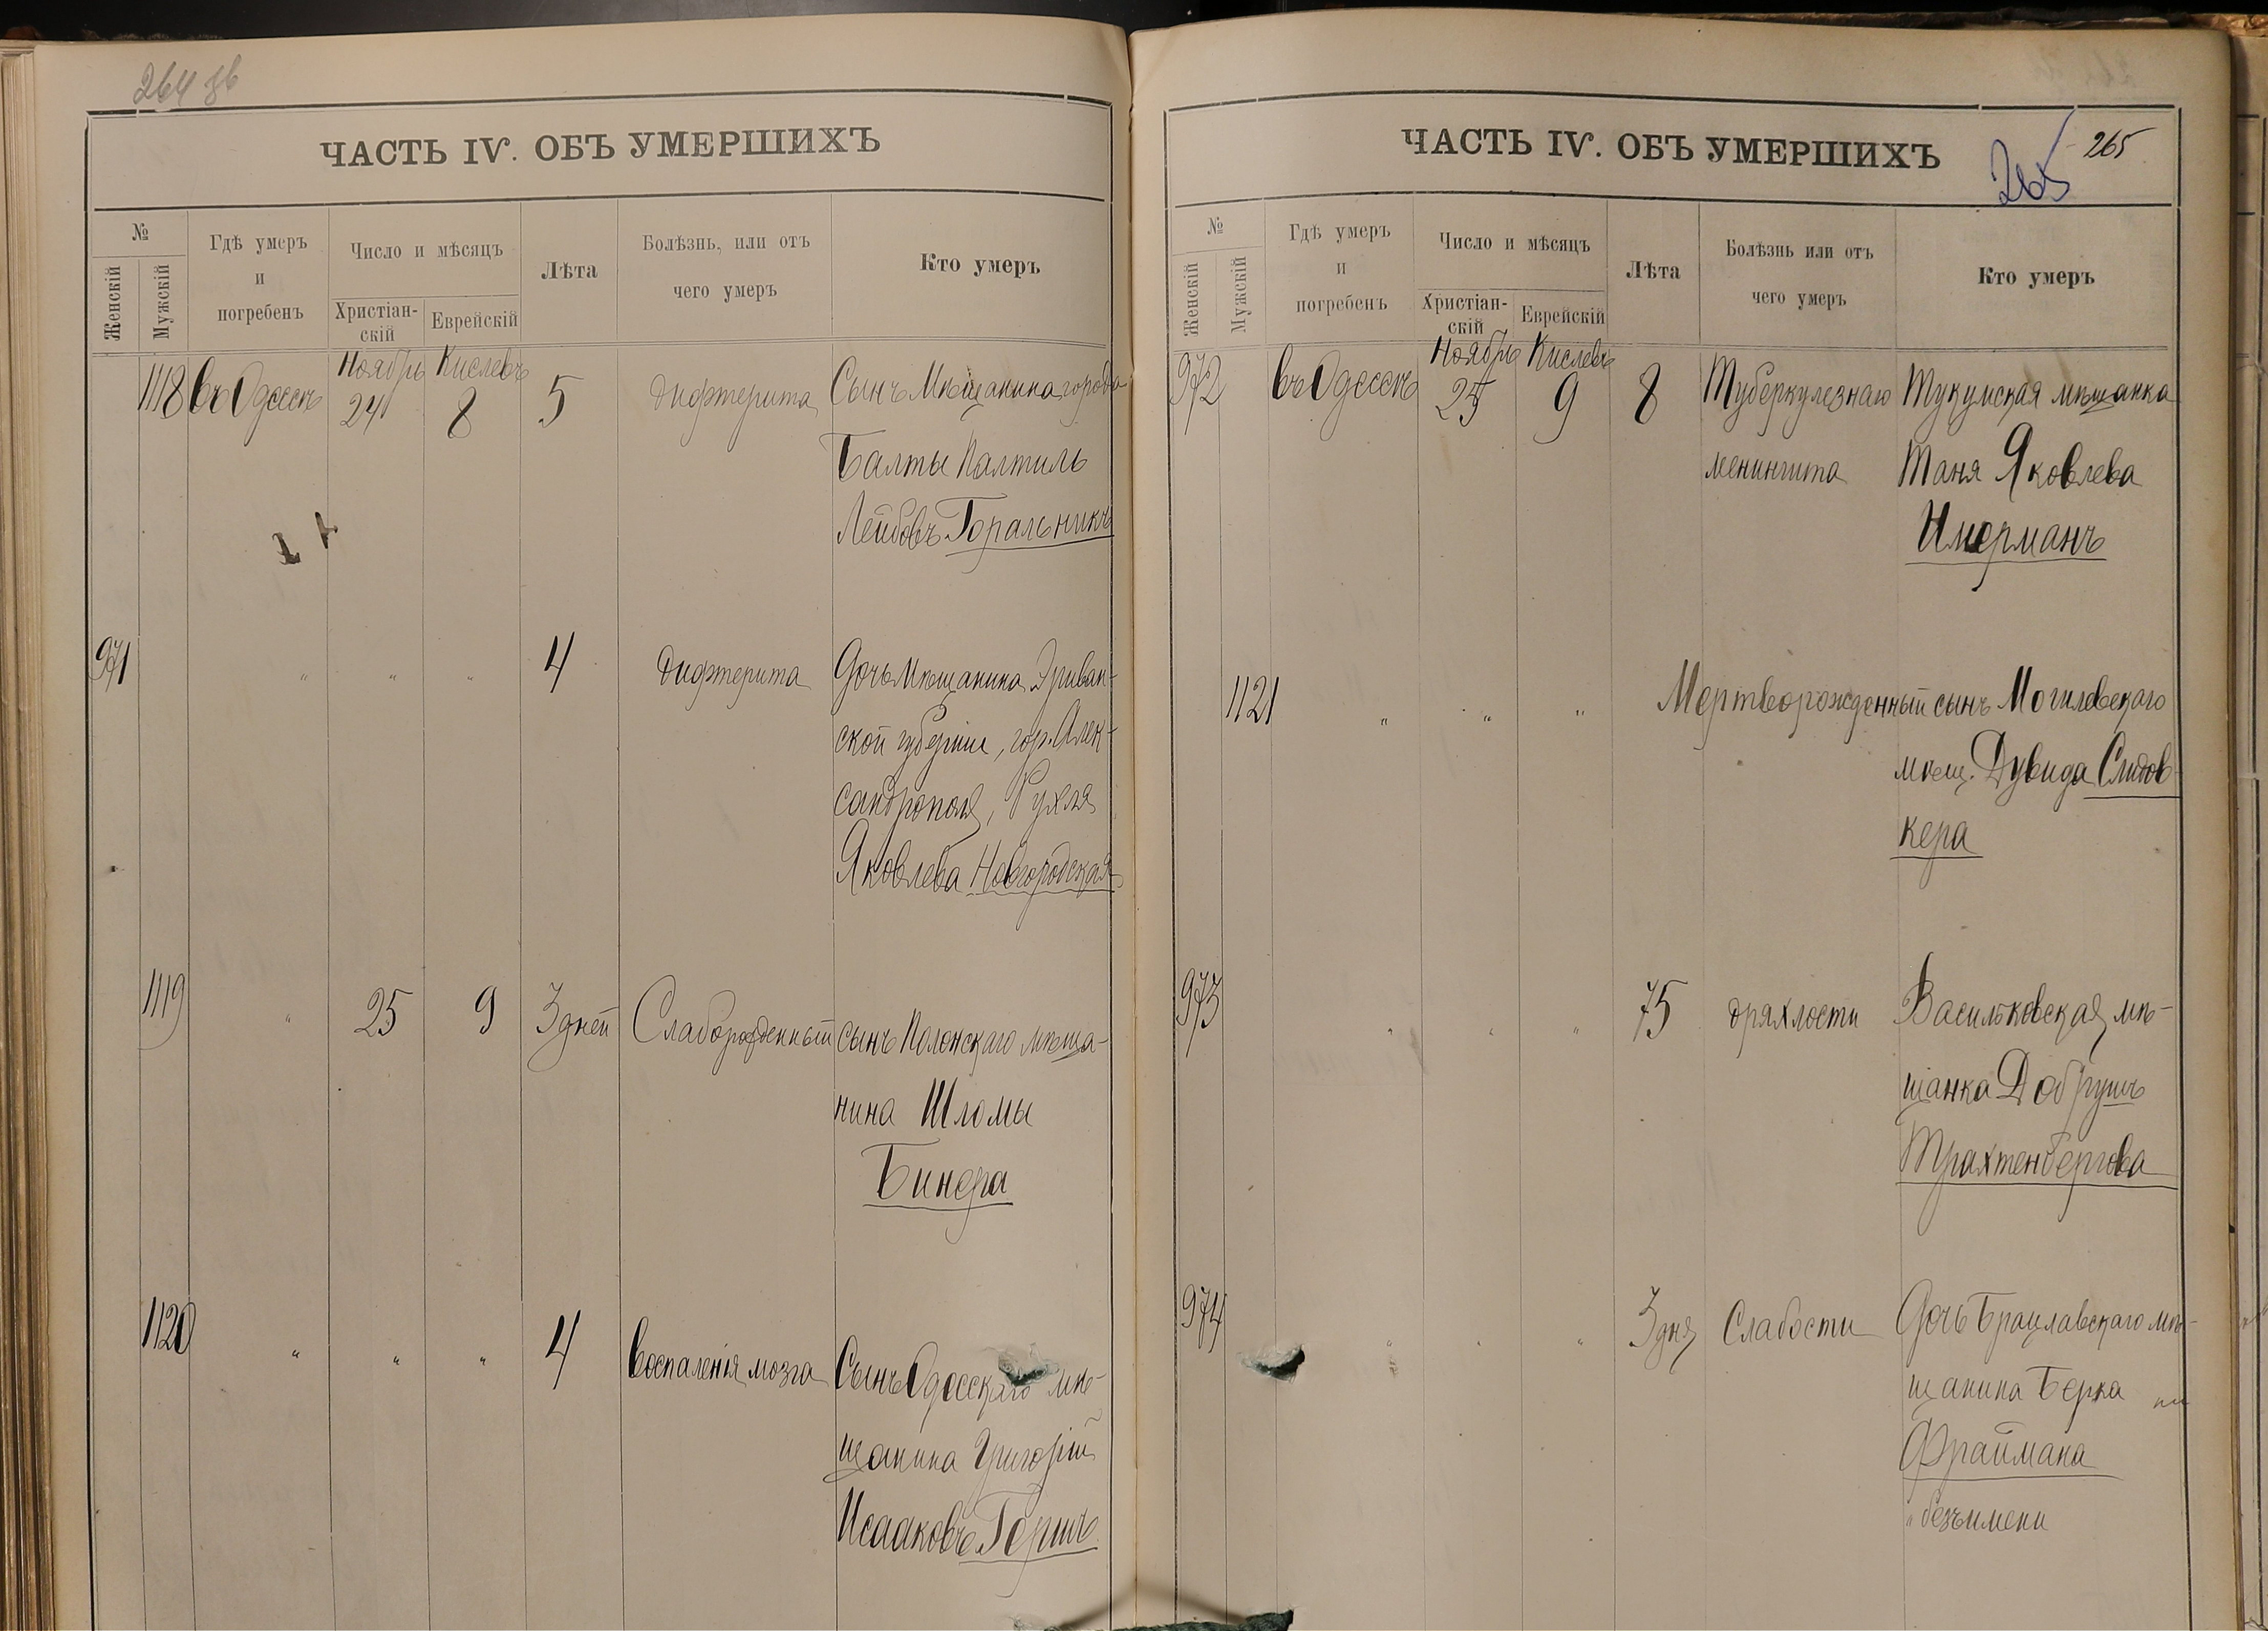 264 об
ЧАСТЬ IV. ОБЪ УМЕРШИХЪ
№
Женскій
Мужскій
Гдѣ умеръ
и
погребенъ
Число и мѣсяцъ
Христіан-
скій
Еврейскій
Лѣта
Болѣзнь, или отъ
чего умеръ
Кто умеръ
Ноябрь Кислевъ
1118 въ Одессѣ 24 8 5 Дифтерита Сынъ Мѣщанина города
Балты Палтиль
Лейбовъ Горальникъ
971 " " " 4 Дифтерита Дочь Мѣщанина Эриван-
ской губерніи, гор. Алек-
сандрополя, Рухля
Яковлева Новгородская
1119 " 25 9 3 дней Слаборожденный сынъ Полонскаго мѣща-
нина Шломы
Бинера
1120 " " " 4 Воспаленія мозга Сынъ Одесскаго мѣ-
щанина Григорій
Исааковъ Гершъ
ЧАСТЬ IV. ОБЪ УМЕРШИХЪ
265
265
№
Женскій
Мужскій
Гдѣ умеръ
и
погребенъ
Число и мѣсяцъ
Христіан-
скій
Еврейскій
Лѣта
Болѣзнь или отъ
чего умеръ
Кто умеръ
Ноябрь Кислевъ
972 въ Одессѣ 25 9 8 Туберкулезнаго Тукумская мѣщанка
менингита Таня Яковлева
Имерманъ
1121 " " " Мертворожденный сынъ Могилевскаго
мѣщ. Дувида Сидов-
кера
973 " " " 75 дряхлости Васильковская мѣ-
щанка Добрушъ
Трахтенбергова
974 " " " 3 дня Слабости Дочь Брацлавскаго мѣ-
щанина Берка
Фраймана
" безъимени